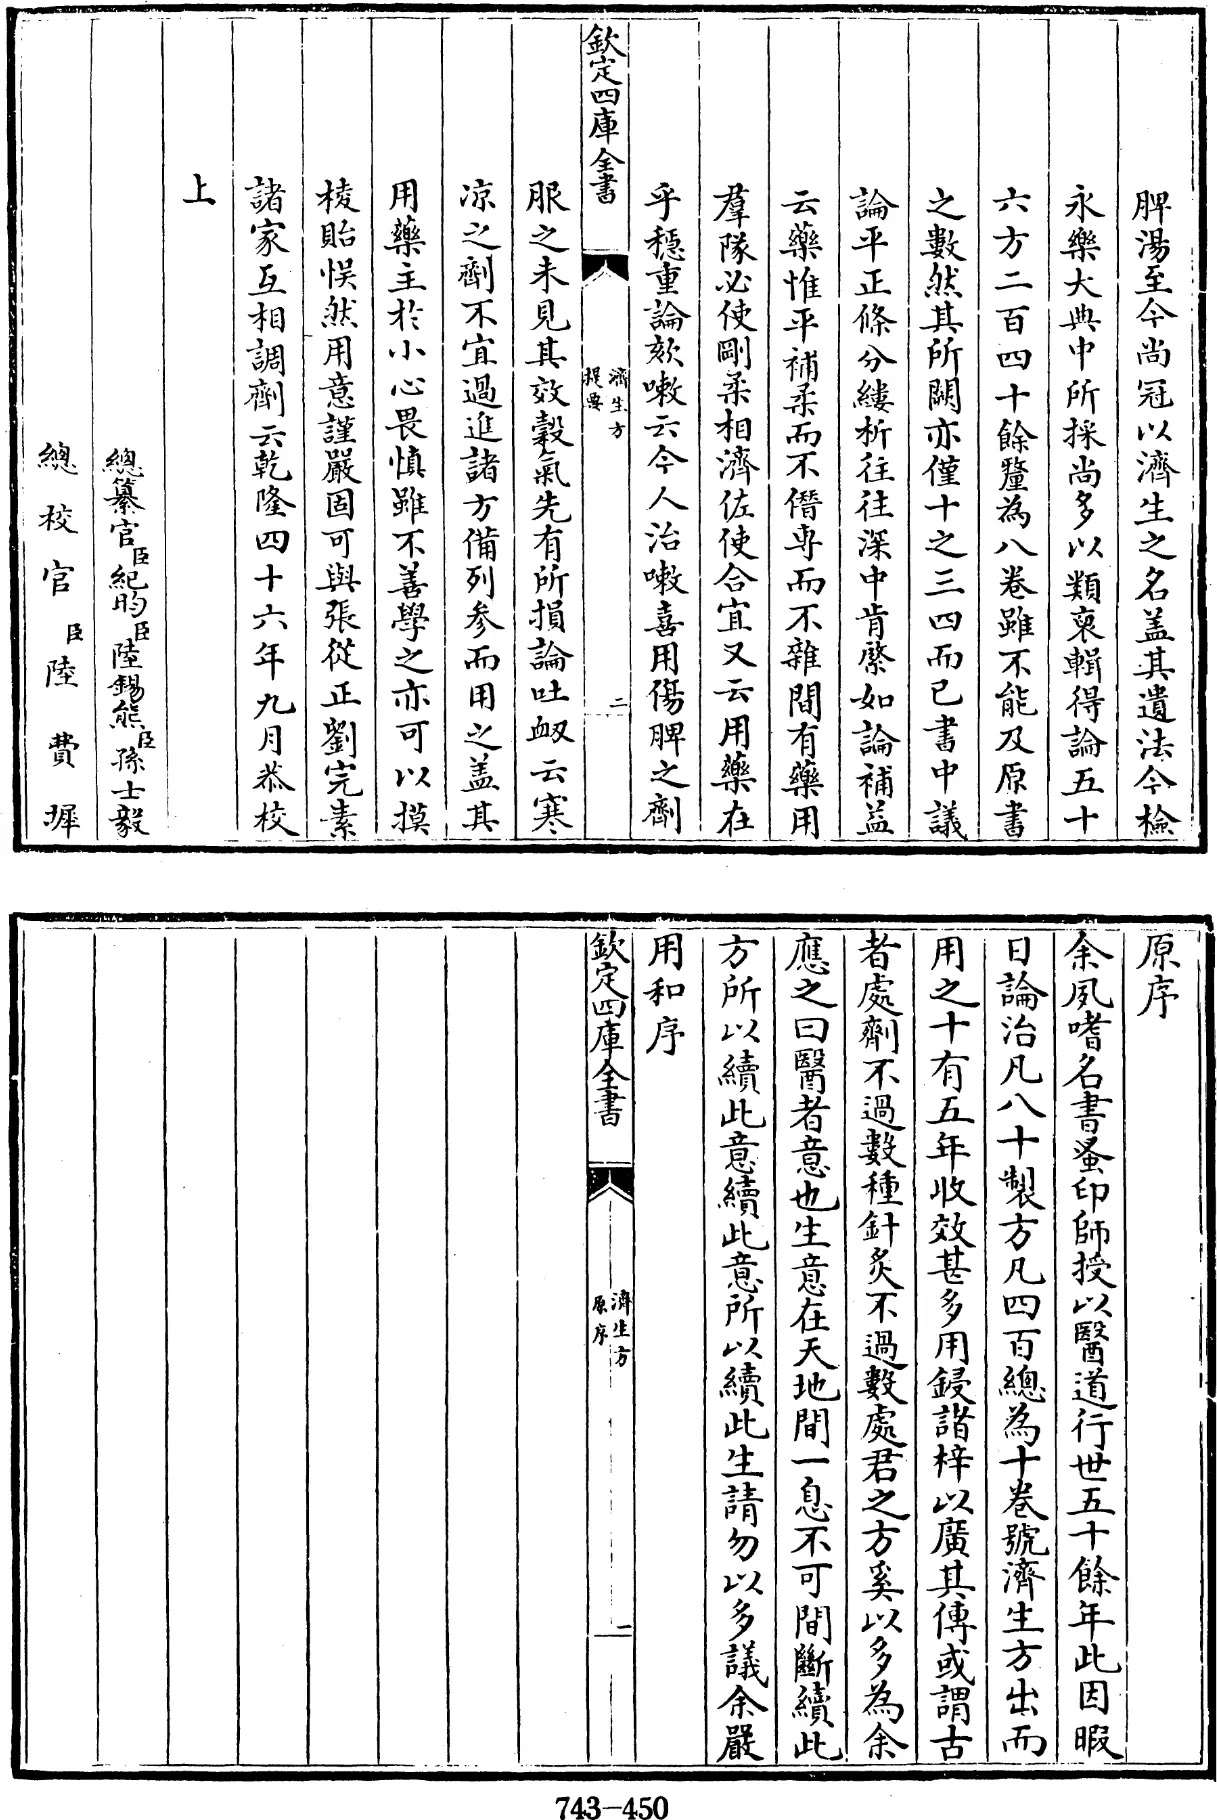 脾湯至今尚冠以濟生之名盖其遺法今檢
永樂大典中所採尚多以類裒輯得論五十
六方二百四十餘釐為八卷雖不能及原書
之數然其所闕亦僅十之三四而已書中議
論平正條分縷析往往深中肯綮如論補益
云藥惟平補柔而不僭専而不雜間有藥用
羣隊必使剛柔相濟佐使合宜又云用藥在
乎穩重論欬嗽云今人治嗽喜用傷脾之劑
欽定四庫全書
濟生方
提要
二
服之未見其效穀氣先有所損論吐衂云寒
凉之劑不宜過進諸方備列參而用之盖其
用藥主於小心畏慎雖不善學之亦可以摸
棱貽悞然用意謹嚴固可與張從正劉完素
諸家互相調劑云乾隆四十六年九月恭校
上
總纂官臣紀昀臣陸錫熊臣孫士毅
總校官臣陸費墀
原序
余夙嗜名書蚤印師授以醫道行世五十餘年此因暇
日論治凡八十製方凡四百總為十卷號濟生方出而
用之十有五年收效甚多用鋟諸梓以廣其傳或謂古
者處劑不過數種針炙不過數處君之方奚以多為余
應之曰醫者意也生意在天地間一息不可間斷續此
方所以續此意續此意所以續此生請勿以多議余嚴
用和序
欽定四庫全書
濟生方
原序
二
743-450